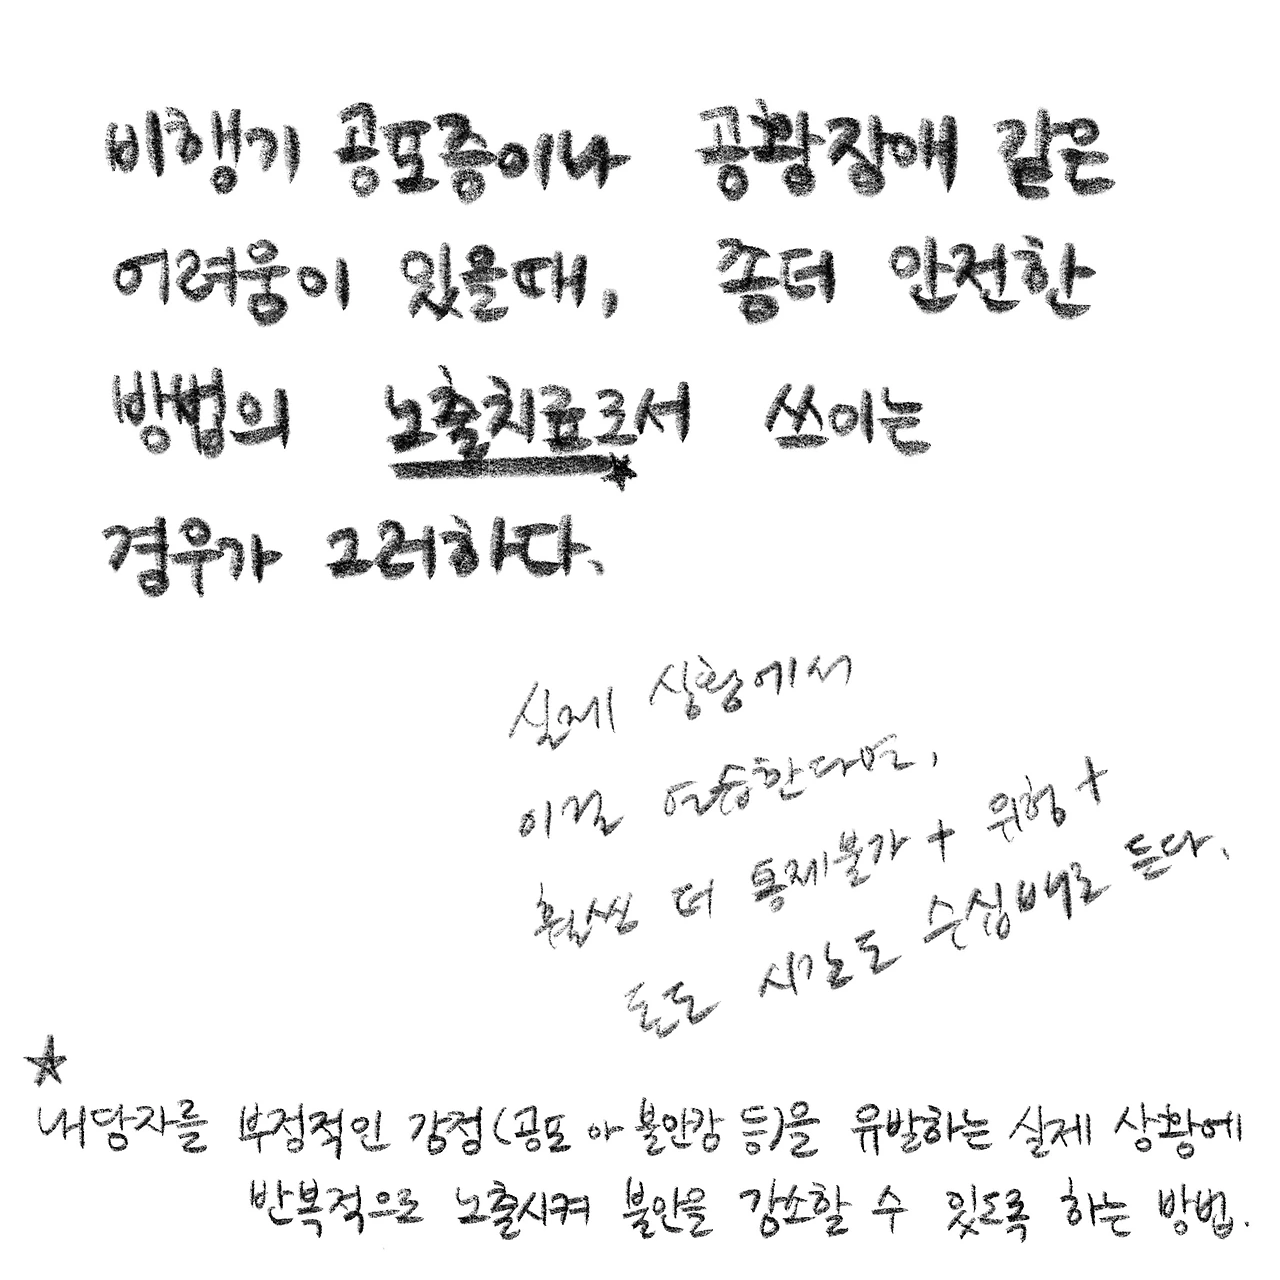 비행기 공포증이나 공황장애 같은
어려움이 있을때, 좀더 안전한
방법의 노출치료로서 쓰이는
경우가 그러하다.
실제 상황에서
이걸 연습한다면,
훨씬 더 통제불가 + 위험 +
돈도 시간도 수십배로 든다.
★
내담자를 부정적인 감정(공포 나 불안감 등)을 유발하는 실제 상황에
반복적으로 노출시켜 불안을 감소할 수 있도록 하는 방법.